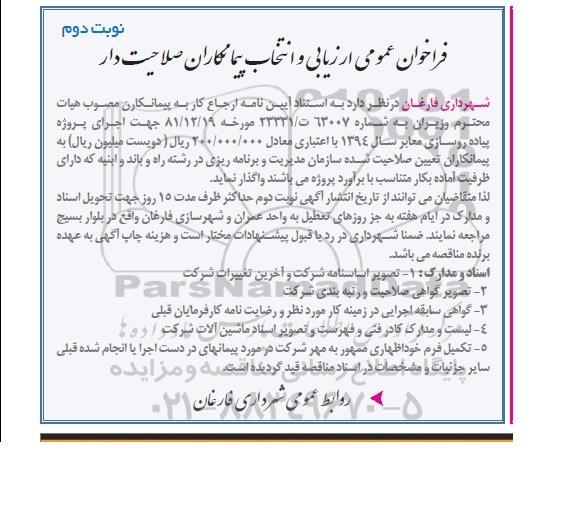 نوبت دوم
فراخوان عمومی ارزیابی و انتخاب پیمانکاران صلاحیت دار
شهرداری فارغان درنظر دارد به استناد آیین نامه ارجاع کار به پیمانکارن مصوب هیات
محترم وزیران به شماره ۶۳۰۰۷ ت/۲۳۳۳۱ مورخه ۸۱/۱۲/۱۹ جهت اجرای پروژه
پیاده روسازی معابر سال ۱۳۹۴ با اعتباری معادل ۲۰۰/۰۰۰/۰۰۰ ریال ( دویست میلیون ریال) به
پیمانکاران تعیین صلاحیت شده سازمان مدیریت و برنامه ریزی در رشته راه و باند و ابنیه که دارای
ظرفیت آماده بکار متناسب با برآورد پروژه می باشند واگذار نماید.
لذا متقاضیان می توانند از تاریخ انتشار آگهی نوبت دوم حداکثر ظرف مدت ۱۵ روز جهت تحویل اسناد
و مدارک در ایام هفته به جز روزهای تعطیل به واحد عمران و شهرسازی فارغان واقع در بلوار بسیج
مراجعه نمایند. ضمنا شهرداری در رد یا قبول پیشنهادات مختار است و هزینه چاپ آگهی به عهده
برنده مناقصه می باشد.
اسناد و مدارک : ۱- تصویر اساسنامه شرکت و آخرین تغییرات شرکت
۲- تصویر گواهی صلاحیت و رتبه بندی شرکت
۳- گواهی سابقه اجرایی در زمینه کار مورد نظر و رضایت نامه کارفرمایان قبلی
۴- لیست و مدارک کادر فنی و فهرست و تصویر اسناد ماشین آلات شرکت
۵- تکمیل فرم خوداظهاری ممهور به مهر شرکت در مورد پیمانهای در دست اجرا یا انجام شده قبلی
سایر جزئیات و مشخصات در اسناد مناقصه قید گردیده است.
روابط عمومی شهرداری فارغان
ParsNamadData
پایگاه اطلاع رسانی مناقصه و مزایده
۰۲۱-۸۸۳۴۹۶۷۰-۵